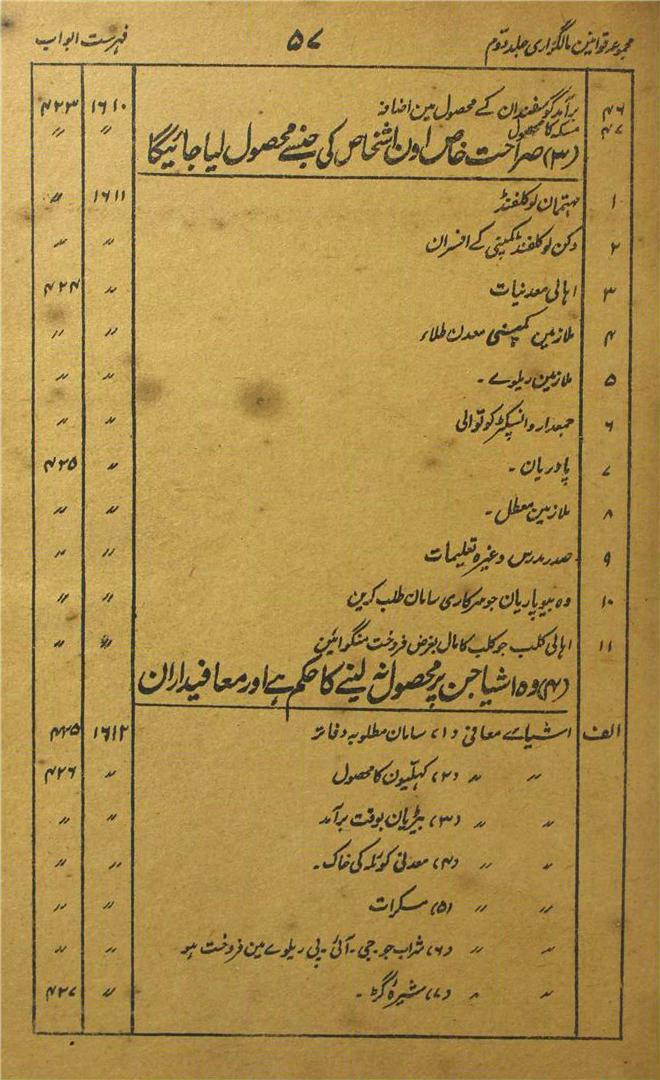 مجموعہ قوانین مالگزاری جلد دوم ۵۷ فہرست ابواب
۴۶ برآمد گوسفندان کے محصول مین اضافہ ۱۶۱۰ ۴۲۳
۴۷ مسکہ کا محصول 〃 〃
(۳) صراحت خاص اون اشخاص کی جنسے محصول لیا جائیگا
۱ مہتممان لوکلفنڈ ۱۶۱۱ 〃
۲ دکن لوکلفنڈ کمپنی کے افسران 〃 〃
۳ اہالی معدنیات 〃 ۴۲۴
۴ ملازمین کمپنی معدن طلاء 〃 〃
۵ ملازمین ریلوے ۔ 〃 〃
۶ جمعدار و انسپکٹر کوتوالی 〃 〃
۷ پادریان ۔ 〃 ۴۲۵
۸ ملازمین معطل ۔ 〃 〃
۹ صدر مدرس وغیرہ تعلیمات 〃 〃
۱۰ وہ بیوپاریان جو سرکاری سامان طلب کرین 〃 〃
۱۱ اہالی کلب جو کلب کا مال بغرض فروخت منگوائین 〃 〃
(۴) وہ اشیا جن پر محصول نہ لینے کا حکم ہے اور معافیداران
الف اشیاے معافی (۱) سامان مطلوبہ دفاتر ۱۶۱۲ ۴۲۵
〃 〃 (۲) کا محصول 〃 ۴۲۶
〃 〃 (۳) بیڑیان بوقت برآمد 〃 〃
〃 〃 (۴) معدنی کوئلہ کی خاک ۔ 〃 〃
〃 〃 (۵) مسکرات 〃 〃
〃 〃 (۶) شراب جو جی ۔ آئی ۔ پی ریلوے مین فروخت ہو 〃 〃
〃 〃 (۷) شیرۂ گڑ ۔ 〃 ۴۲۷